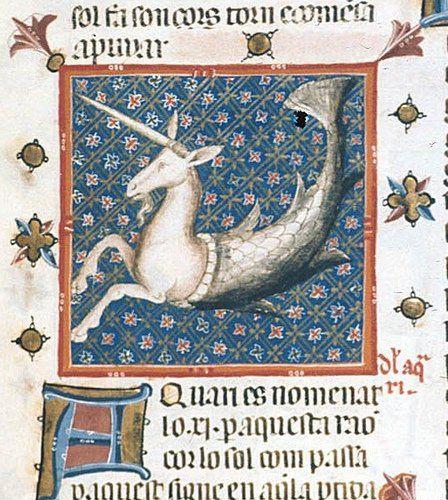 sol fa son cors torn e comẽsa
apuiar
dl aq̃
ri.
AQuari es nomenat
lo.xi. paquesta rao
cor lo sol com passa
paquest signe en aq̃la ptida